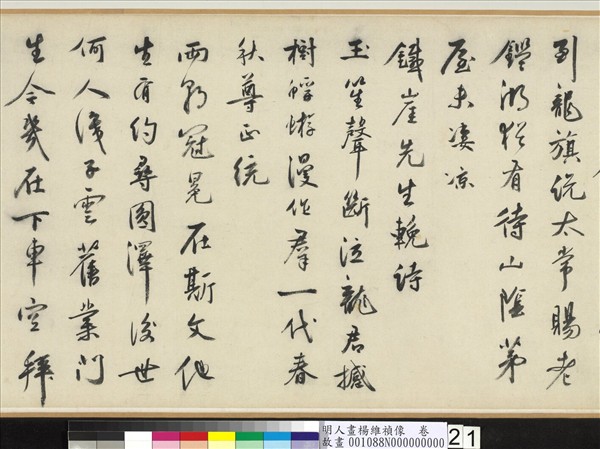 到龍旗繞太常賜老
鑑湖猶有待山陰茅
屋未淒凉
鐵崖先生輓詩
玉笙聲斷泣龍君撼
樹蜉蝣漫作群一代春
秋尊正統
兩朝冠冕在斯文他
生有約尋圓澤後世
何人識子雲舊業門
生今幾在下車空拜
明人畫楊維禎像 卷
故畫 001088N000000000
21